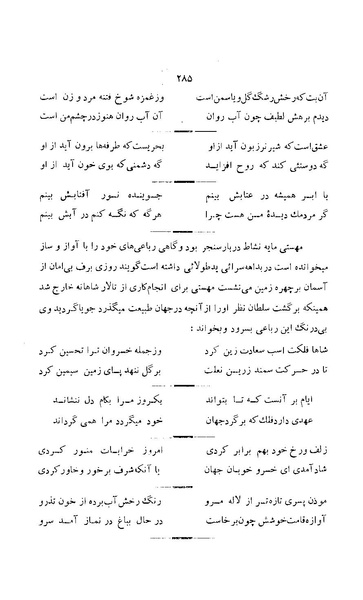 ۲۸۵
آن بت که رخش رشک گل و یاسمن است وز غمزه شوخ فتنه مرد و زن است
دیدم برهش لطیف چون آب روان آن آب روان هنوز در چشم من است
عشق است که شیر نر زبون آید از او بحریست که طرفه‌ها برون آید از او
گه دوستئی کند که روح افزاید گه دشمنی که بوی خون آید از او
یا ابر همیشه در عتابش بینم جوینده نور آفتابش بینم
گر مردمک دیدهٔ من هست چرا هرگه که نگه کنم در آبش بینم
مهستی مایه نشاط دربار سنجر بود و گاهی رباعی‌های خود را با آواز و ساز
میخوانده است در بداهه سرائی ید طولائی داشته است گویند روزی برف بی‌امان از
آسمان بر چهره زمین می‌نشست مهستی برای انجام کاری از تالار شاهانه خارج شد
همینکه برگشت سلطان نظر او را از آنچه در جهان طبیعت میگذرد جویا گردید وی
بی‌درنگ این رباعی بسرود و بخواند :
شاها فلکت اسب سعادت زین کرد وز جمله خسروان ترا تحسین کرد
تا در حرکت سمند زرین نعلت بر گل ننهد پای زمین سیمین کرد
ایام بر آنست که تا بتواند یکروز مرا بکام دل ننشاند
عهدی دارد فلک که بر گرد جهان خود میگردد مرا همی گرداند
زلف و رخ خود بهم برابر کردی امروز خرابات منور کردی
شاد آمدی ای خسرو خوبان جهان یا آنکه شرف بر خور و خاور کردی
موذن پسری تازه‌تر از لاله مرو رنگ رخش آب برده از خون تذرو
آوازه قامت خوشش چون برخاست در حال بباغ در نماز آمد سرو